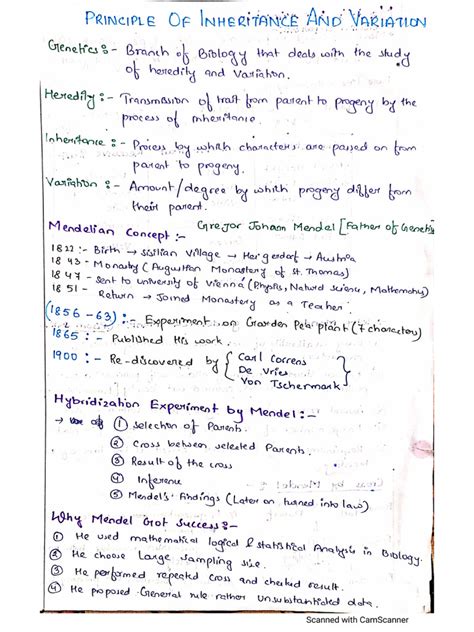 PRINCIPLE OF INHERITANCE AND VARIATION
Genetics :- Branch of Biology that deals with the study
of heredity and Variation.
Heredity :- Transmission of trait from parent to progeny by the
process of inheritance.
Inheritance :- Process by which characters are passed on from
parent to progeny.
Variation :- Amount/degree by which progeny differ from
their parent.
Mendelian Concept :- Gregor Johann Mendel [Father of Genetics
1822 :- Birth → Silisian Village → Hergerdorf → Austria
1843 - Monastry (Augustian Monastery of St. Thomas)
1847 - Sent to University of Vienna (Physis, Natural Science, Mathematics)
1851 - Return → Joined Monastery as a Teacher
(1856 - 63) :- Experiment on Garden Pea plant (7 characters)
1865 :- Published His work
1900 :- Re-discovered by { Carl Correns
De Vries
Von Tschermark
Hybridization Experiment by Mendel :-
→ ① Selection of Parents
② Cross between selected Parents
③ Result of the cross
④ Inference
⑤ Mendel's findings (Later on turned into law)
Why Mendel Got Success :-
① He used mathematical logical & statistical Analysis in Biology.
② He choose large sampling size.
③ He performed repeated cross and checked result.
④ He proposed General rule rather Unsubstantiated data.
Scanned with CamScanner